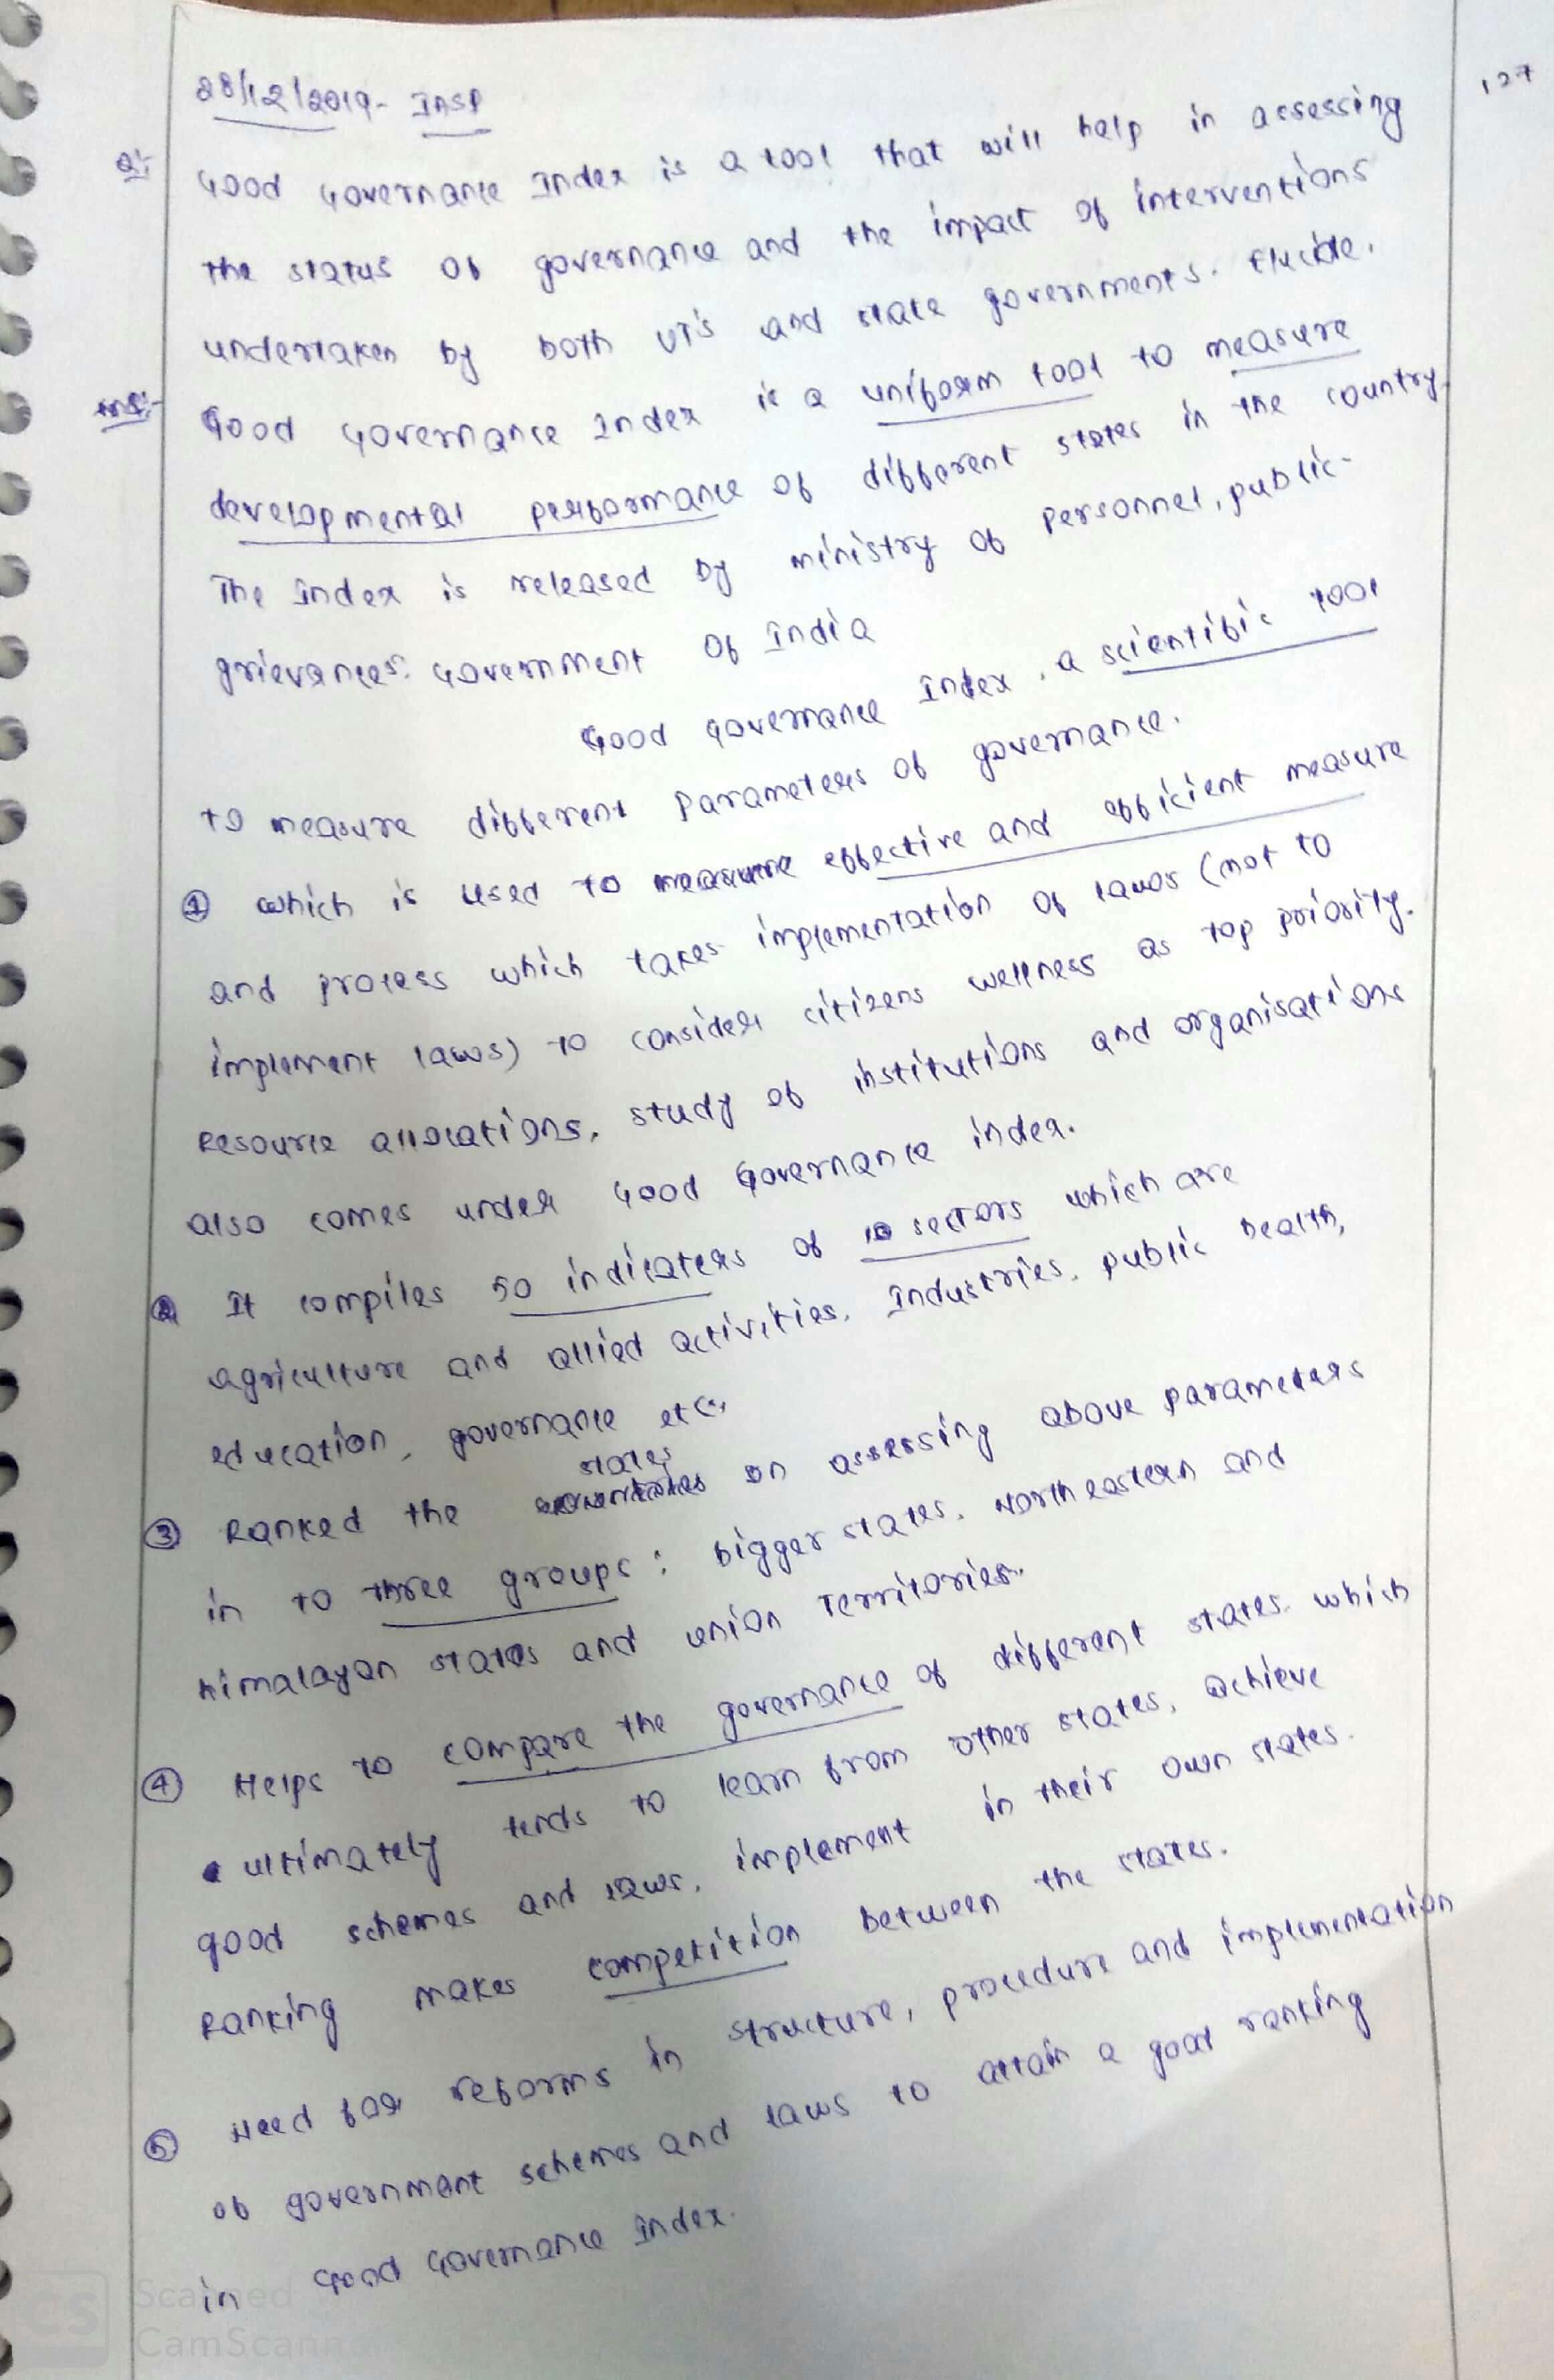 28/12/2019- INSP
127
Q:-
Good Governance Index is a tool that will help in assessing
the status of governance and the impact of interventions
undertaken by both UT's and state governments. Elucidate.
Ans:-
Good Governance Index is a uniform tool to measure
developmental performance of different states in the country.
The index is released by ministry of personnel, public-
grievances. Government of India
Good governance Index, a scientific tool
to measure different parameters of governance.
① which is used to measure effective and efficient measure
and process which takes implementation of laws (not to
implement laws) to consider citizens wellness as top priority.
Resource allocations, study of institutions and organisations
also comes under Good Governance index.
② It compiles 50 indicaters of 10 sectors which are
agriculture and allied activities, Industries, public health,
education, governance etc.,
states
③ Ranked the on assessing above parameters
in to three groups: bigger states, North eastern and
himalayan states and union Territories.
④ Helps to compare the governance of different states. which
ultimately tends to learn from other states, achieve
good schemes and laws, implement in their own states.
Ranking makes competition between the states.
⑤ Need for reforms in structure, procedure and implementation
of government schemes and laws to attain a good ranking
in Good Governance Index.
CS Scanned
CamScanner